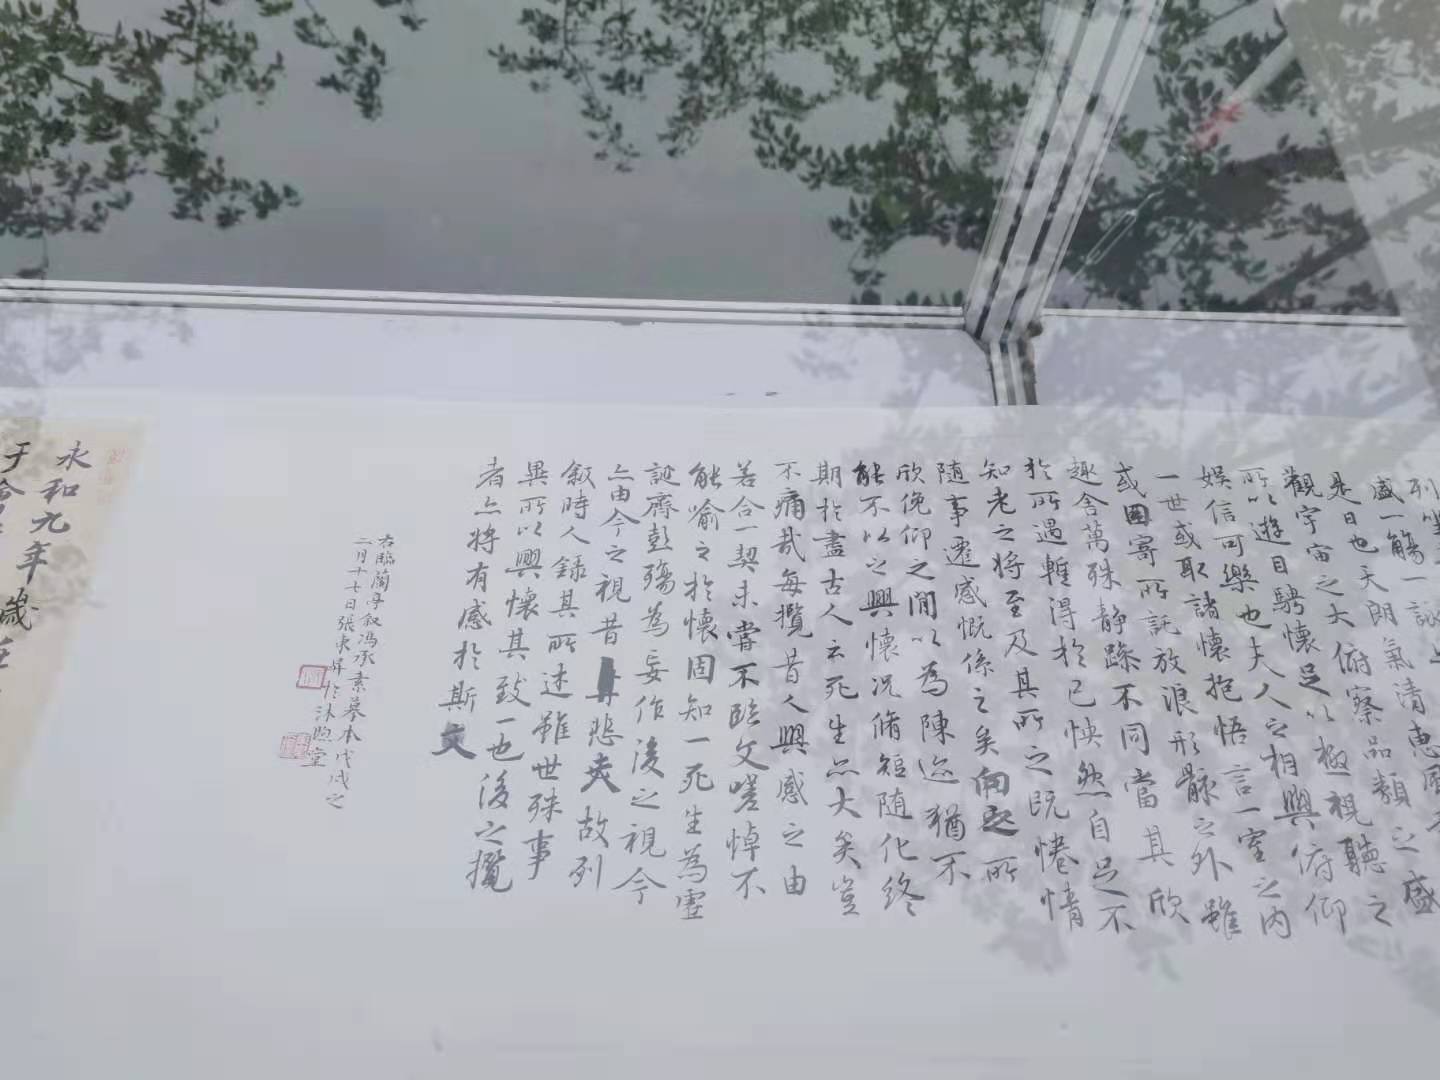 盛一觴一詠
是日也天朗氣清惠風
觀宇宙之大俯察品類之盛
所以遊目騁懷足以極視聽之
娛信可樂也夫人之相與俯仰
一世或取諸懷抱悟言一室之內
或因寄所託放浪形骸之外雖
趣舍萬殊靜躁不同當其欣
於所遇蹔得於己怏然自足不
知老之將至及其所之既惓情
隨事遷感慨係之矣向之所
欣俛仰之間以為陳迹猶不
能不以之興懷況脩短隨化終
期於盡古人云死生亦大矣豈
不痛哉每攬昔人興感之由
若合一契未嘗不臨文嗟悼不
能喻之於懷固知一死生為虛
誕齊彭殤為妄作後之視今
亦由今之視昔悲夫故列
敘時人錄其所述雖世殊事
異所以興懷其致一也後之攬
者亦將有感於斯文
右臨蘭亭叙冯承素摹本戊戌之
二月十七日張東昇作沐煦堂
永和九年歲在